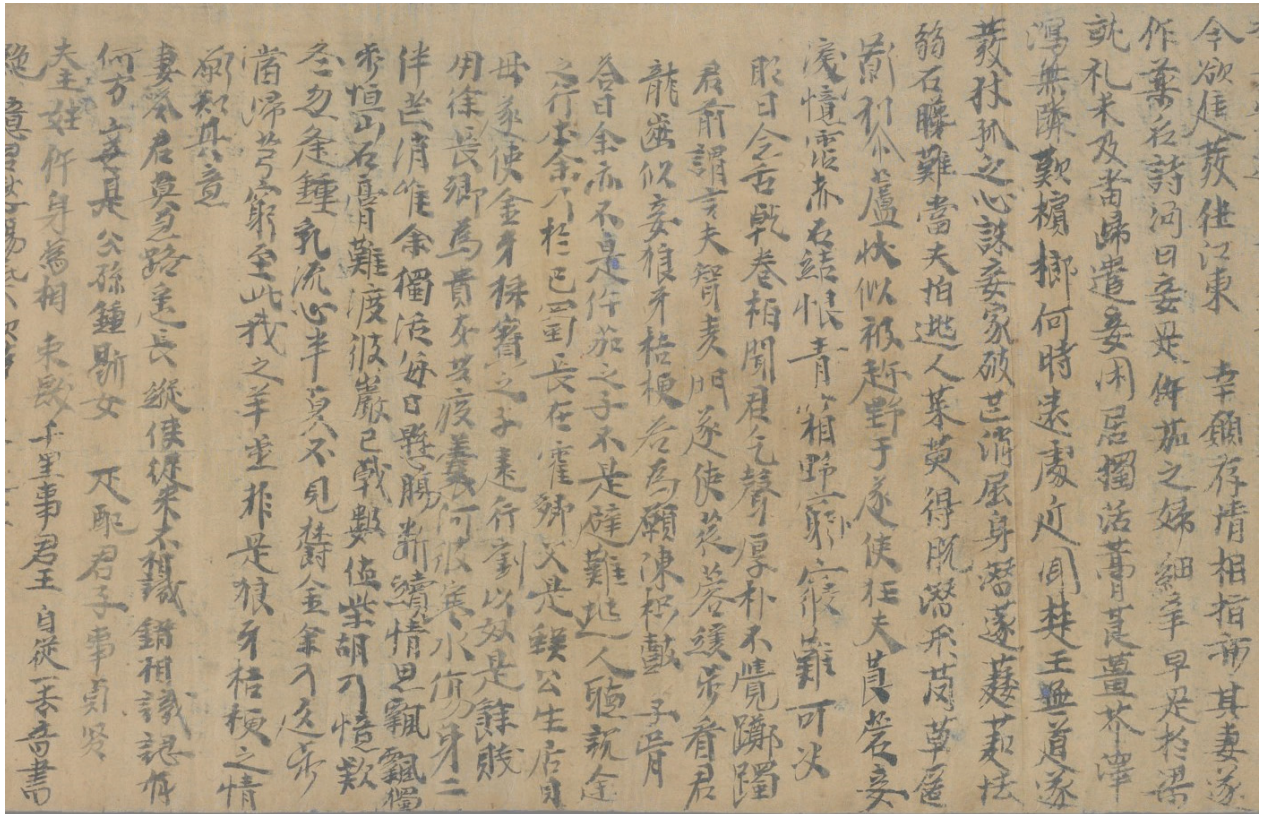 今欲進發往江東　幸願存情相指示其妻遂
作藥名詩問曰妾是仵茄之婦細辛早是於梁
就礼未及當歸遣妾閑居獨活膏莨薑芥澤
瀉無隣歎檳榔何時遠處近聞楚王無道遂
發犲狐之心誅妾家破芒消屈身潛遂葳蕤怯
弱石膽難當夫怕逃人茱萸得脫潛形茵草匿
影利蘆狀似被趂野干遂使狂夫莨菪妾
淚憶霑赤石結恨青葙野寢難可決
明日念舌乾卷柏聞君乞聲厚朴不覺躑躅
君前謂言夫智麦門遂使蓯蓉緩步看君
龍齒似妾狼牙桔梗若為願陳枳敷　子胥
荅曰余亦不是仵茄之子不是避難逃人聽說途
之行李余乃於巴蜀長在藿鄉父是蜈公生居貝
母遂使金牙採寶之子遠行劉以奴是餘賤
用徐長卿為貴友共渡蘘何彼寒水傷身二
伴芒消唯余獨活每日懸腸斷續情思飄飄獨
步恒山石膏難渡彼巖巴戟數值柴胡乃憶款
冬忽逢鍾乳流心半夏不見鬱金余乃返步
當歸芎窮至此我之羊齒非是狼牙桔梗之情
願知其意
妻荅君莫急路遙長縱使從來不相識錯相識認有
何方妾是公孫鍾鼎女　疋配君子事貞賢
夫主姓仵身為相　束髮千里事君王　自從一去音書
絕　憶君愁腸氣欲